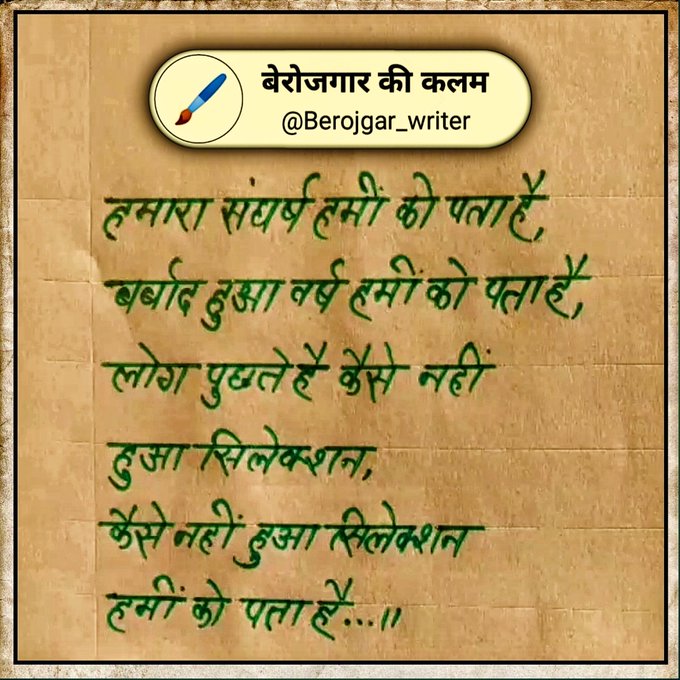 बेरोजगार की कलम
@Berojgar_writer
हमारा संघर्ष हमीं को पता है,
बर्बाद हुआ वर्ष हमीं को पता है,
लोग पुछते है कैसे नहीं
हुआ सिलेक्शन,
कैसे नहीं हुआ सिलेक्शन
हमीं को पता है...।।